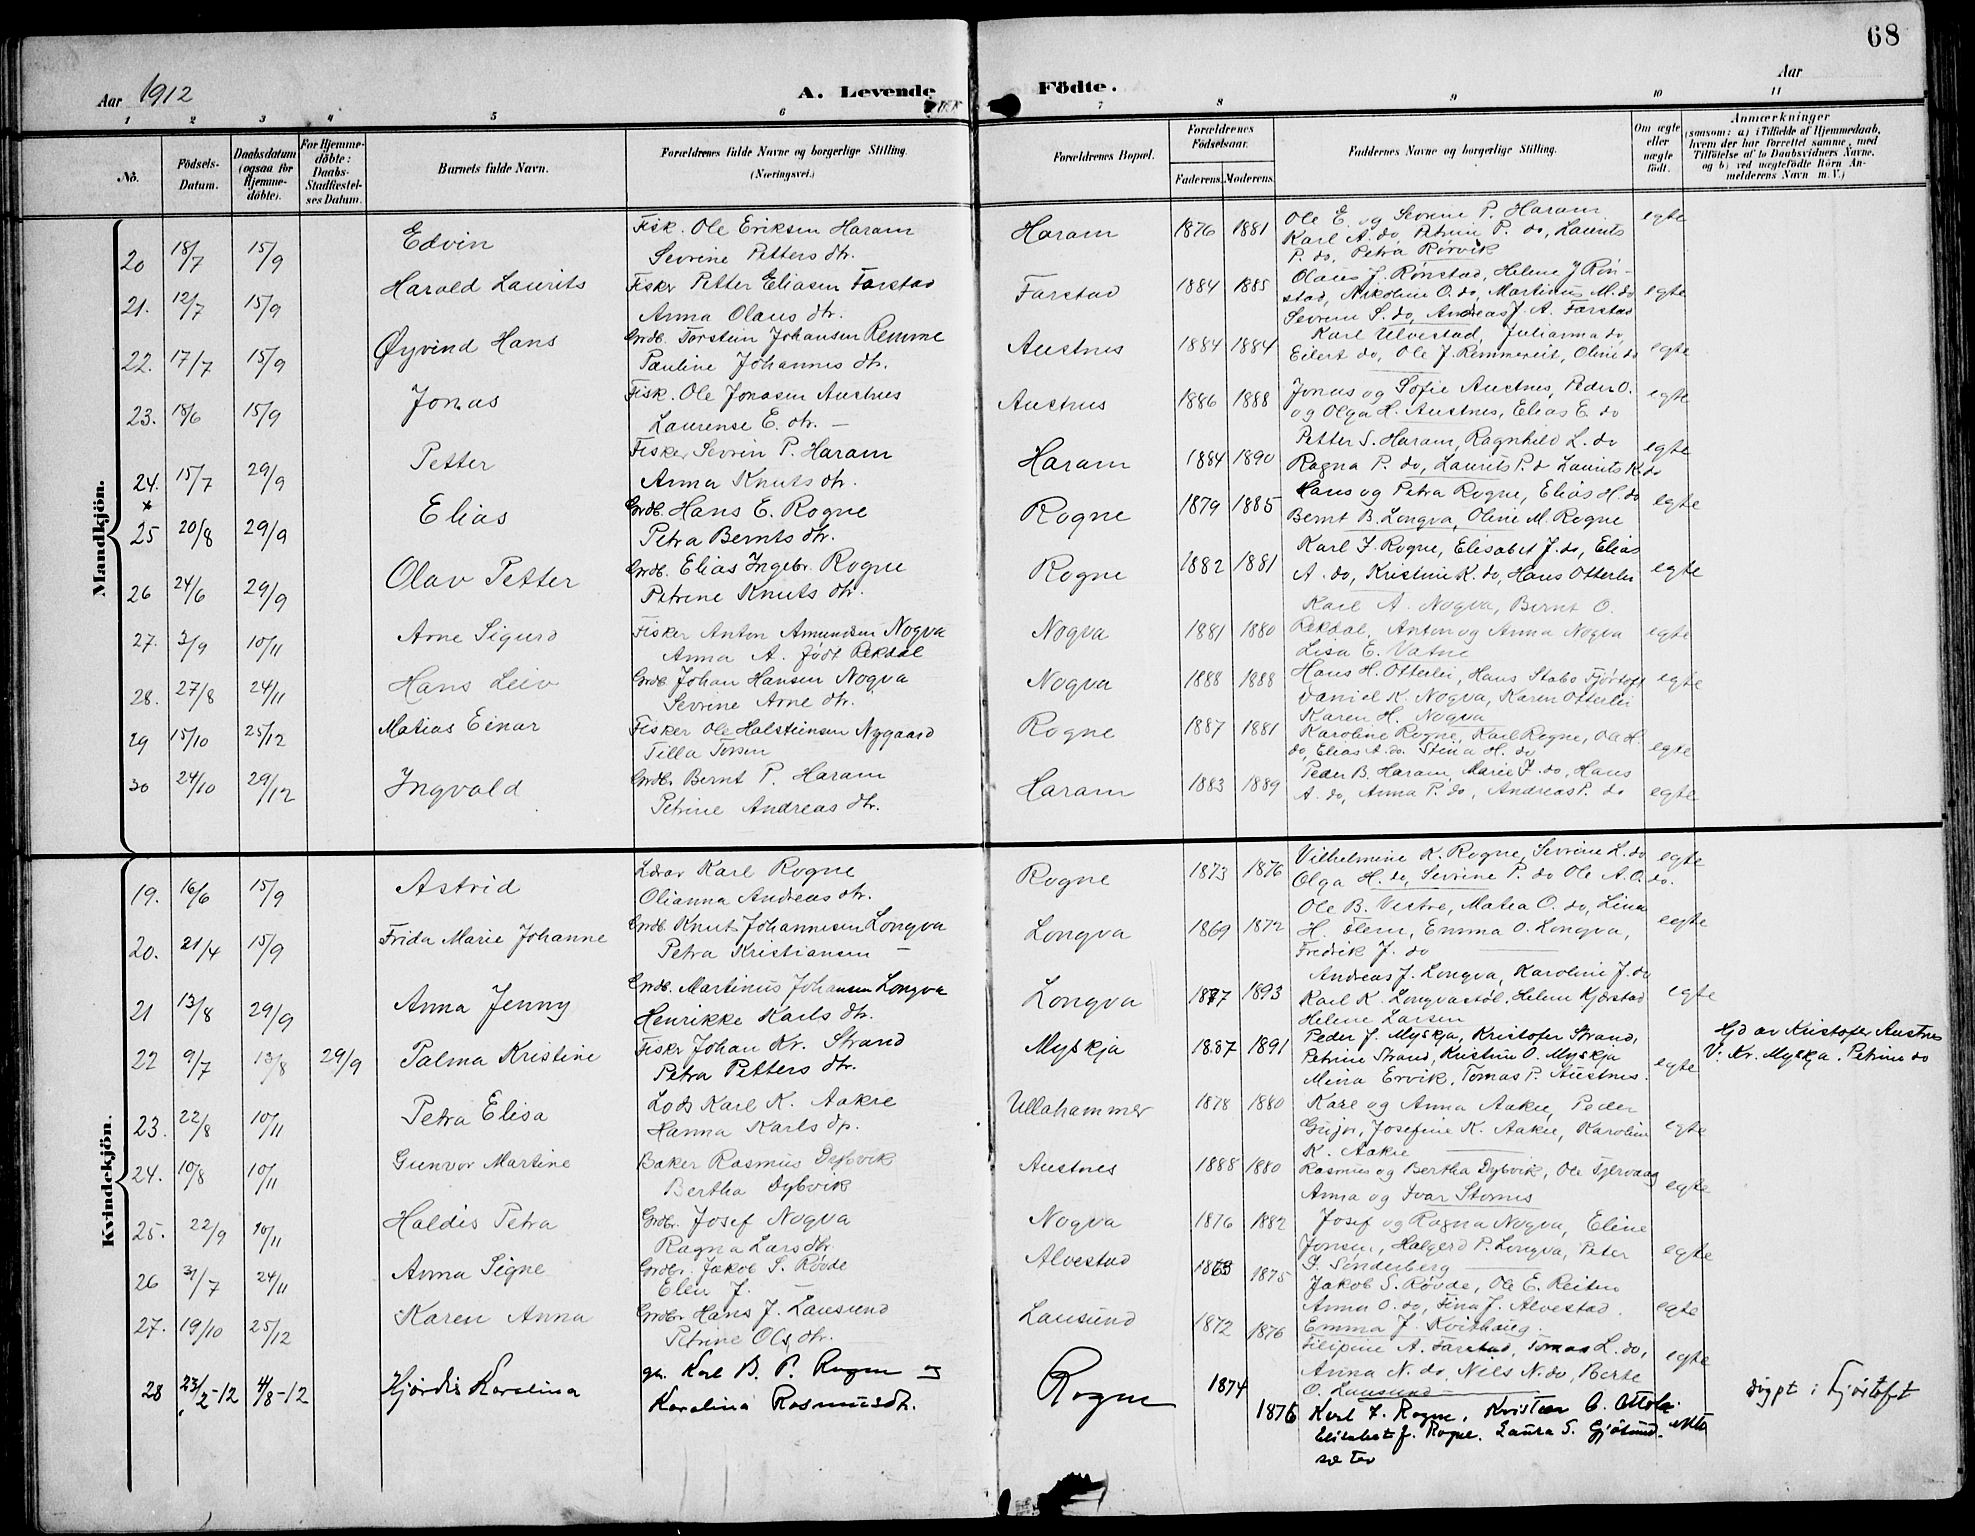 68
Aar 1912 A. Levende Födte. Aar
1 2 3 4 5 6 7 8 9 10 11
No. Födsels-Datum. Daabsdatum (ogsaa for Hjemmedöbte). For Hjemmedöbte: Daabs-Stadfæstelses Datum. Barnets fulde Navn. Forældrenes fulde Navne og borgerlige Stilling. (Næringsvei.) Forældrenes Bopæl. Forældrenes Födselsaar. Faderens. Moderens. Faddernes Navne og borgerlige Stilling. Om ægte eller uægte födt. Anmærkninger (saasom: a) i Tilfælde af Hjemmedaab, hvem der har forrettet samme, med Tilföielse af to Daabsvidners Navne, og b) ved uægtefödte Börn Anmelderens Navn m. V.)
Mandkjön.
20 18/7 15/9 Edvin Fisk. Ole Eriksen Haram Haram 1876 1881 Ole E. og Sevrine P. Haram egte
Sevrine Petters dtr. Karl A. do Petrine P. do, Laurits
P. do, Petra Rørvik
21. 12/7 15/9 Harald Laurits Fisker Petter Eliasen Farstad Farstad 1884 1885 Olaus J. Rønstad, Helene J Røn- egte
Anna Olaus dtr. stad, Nikoline O. do, Martinus M. do
Severin S. do, Andreas J. A. Farstad
22. 17/7 15/9 Øyvind Hans Grdb. Torstein Johansen Remme Austnes 1884 1884 Karl Ulvestad, Julianna do, egte
Pauline Johannes dtr. Eilert do, Ole J. Remmereit, Oline do
23. 18/6 15/9 Jonas Fisk. Ole Jonasen Austnes Austnes 1886 1888 Jonas og Sofie Austnes, Peder O. egte
Laurense E. dtr. — og Olga H. Austnes, Elias E. do
24. 15/7 29/9 Petter Fisker Sevrin P. Haram Haram 1884 1890 Petter S. Haram, Ragnhild L. do egte
Anna Knuts dtr. Ragna P. do, Laurits P. do Laurits K. do
x
25 20/8 29/9 Elias Grdb. Hans E. Rogne Rogne 1879 1885 Hans og Petra Rogne, Elias H. do egte
Petra Bernts dtr. Bernt B. Longva, Oline M. Rogne
26 24/6 29/9 Olav Petter Grdb. Elias Ingebr. Rogne Rogne 1882 1881 Karl J. Rogne, Elisabet J. do, Elias egte
Petrine Knuts dtr. A. do, Kristine K. do, Hans Otterlei
27. 3/9 10/11 Arne Sigurd Fisker Anton Amundsen Nogva Nogva 1881 1880 Karl A. Nogva, Bernt O. egte
Anna A. født Rekdal Rekdal, Anton og Anna Nogva
Lisa E. Vatne
28. 27/8 24/11 Hans Leiv Grdb Johan Hansen Nogva Nogva 1888 1888 Hans H. Otterlei, Hans Stabo Fjørtoft egte
Sevrine Arne dtr. Daniel K. Nogva, Karen Otterlei
Karen H. Nogva
29 15/10 25/12 Matias Einar Fisker Ole Halsteinsen Nygaard Rogne 1887 1881 Karoline Rogne, Karl Rogne, Ola H. egte
Tilla do, Elias A. do. Stina H. do
30 24/10 29/12 Ingvald Grdb. Bernt P. Haram Haram 1883 1889 Peder B. Haram, Marie J. do, Hans egte
Petrine Andreas dtr. A. do, Anna P. do, Andreas P. do
Kvindekjön.
19. 16/6 15/9 Astrid Lærer Karl Rogne Rogne 1873 1876 Vilhelmine K. Rogne, Sevrine L. do egte
Olianna Andreas dtr. Olga H. do, Sevrine P. do Ole A. O. do.
20. 21/4 15/9 Frida Marie Johanne Grdb. Knut Johannesen Longva Longva 1869 1872 Ole B. Vestre, Matea O. do, Lina egte
Petra Kristiansen — H. Flem, Emma O. Longva,
Fredrik J. do
21 13/8 29/9 Anna Jenny Grdb. Martinus Johansen Longva Longva 1887 1893 Andreas J. Longva, Karoline J. do egte
Henrikke Karls dtr. Karl K. Longvastøl, Helene Kjærstad
Helene Larsen
22 9/7 13/8 29/9 Palma Kristine Fisker Johan Kr. Strand Myskja 1887 1891 Peder J. Myskja, Kristofer Strand, egte Hjd av Kristofer Austnes
Petra Petters dtr. Petrine Strand, Kristine O. Myskja V: Kr. Myskja. Petrine do
Mina Ervik, Tomas P. Austnes.
23. 22/8 10/11 Petra Elisa Lods Karl K. Aakre Ullahammer 1878 1880 Karl og Anna Aakre, Peder egte
Hanna Karls dtr. Josefine K. Aakre, Karoline
K. Aakre
24. 10/8 10/11 Gunvor Martine Baker Rasmus Dybvik Austnes 1888 1880 Rasmus og Bertha Dybvik, Ole Tjervaag egte
Bertha Dybvik Anna og Ivar Stornes
25. 22/9 10/11 Haldis Petra Grdbr. Josef Nogva Nogva 1876 1882 Josef og Ragna Nogva, Eline egte
Ragna Lars dtr Jonsen, Halgerd P. Longva, Peter
J. Sønderberg
26 31/7 24/11 Anna Signe Grdbr. Jakob S. Røvde Alvestad 1875 Jakob S. Røvde, Ole E. Reiten egte
Elen J. — Anna O. do, Tina J. Alvestad.
Emma J. Kvithaug.
27. 19/10 25/12 Karen Anna Grdbr. Hans J. Lausund Lausund 1872 1876 Filipine A. Farstad, Tomas L. do, egte
Petrine Ols dtr. Anna N. do, Nils N. do, Berte
O. Lausund
28 23/2-12 4/8-12 Hjørdis Karolina ga. Karl B. P. Rogne og Rogne 1874 1876 Karl J. Rogne, egte døypt i Fjørtoft
Karolina Rasmusdt. Elisabet J. Rogne. Laura S. Gjøsund-
sæter